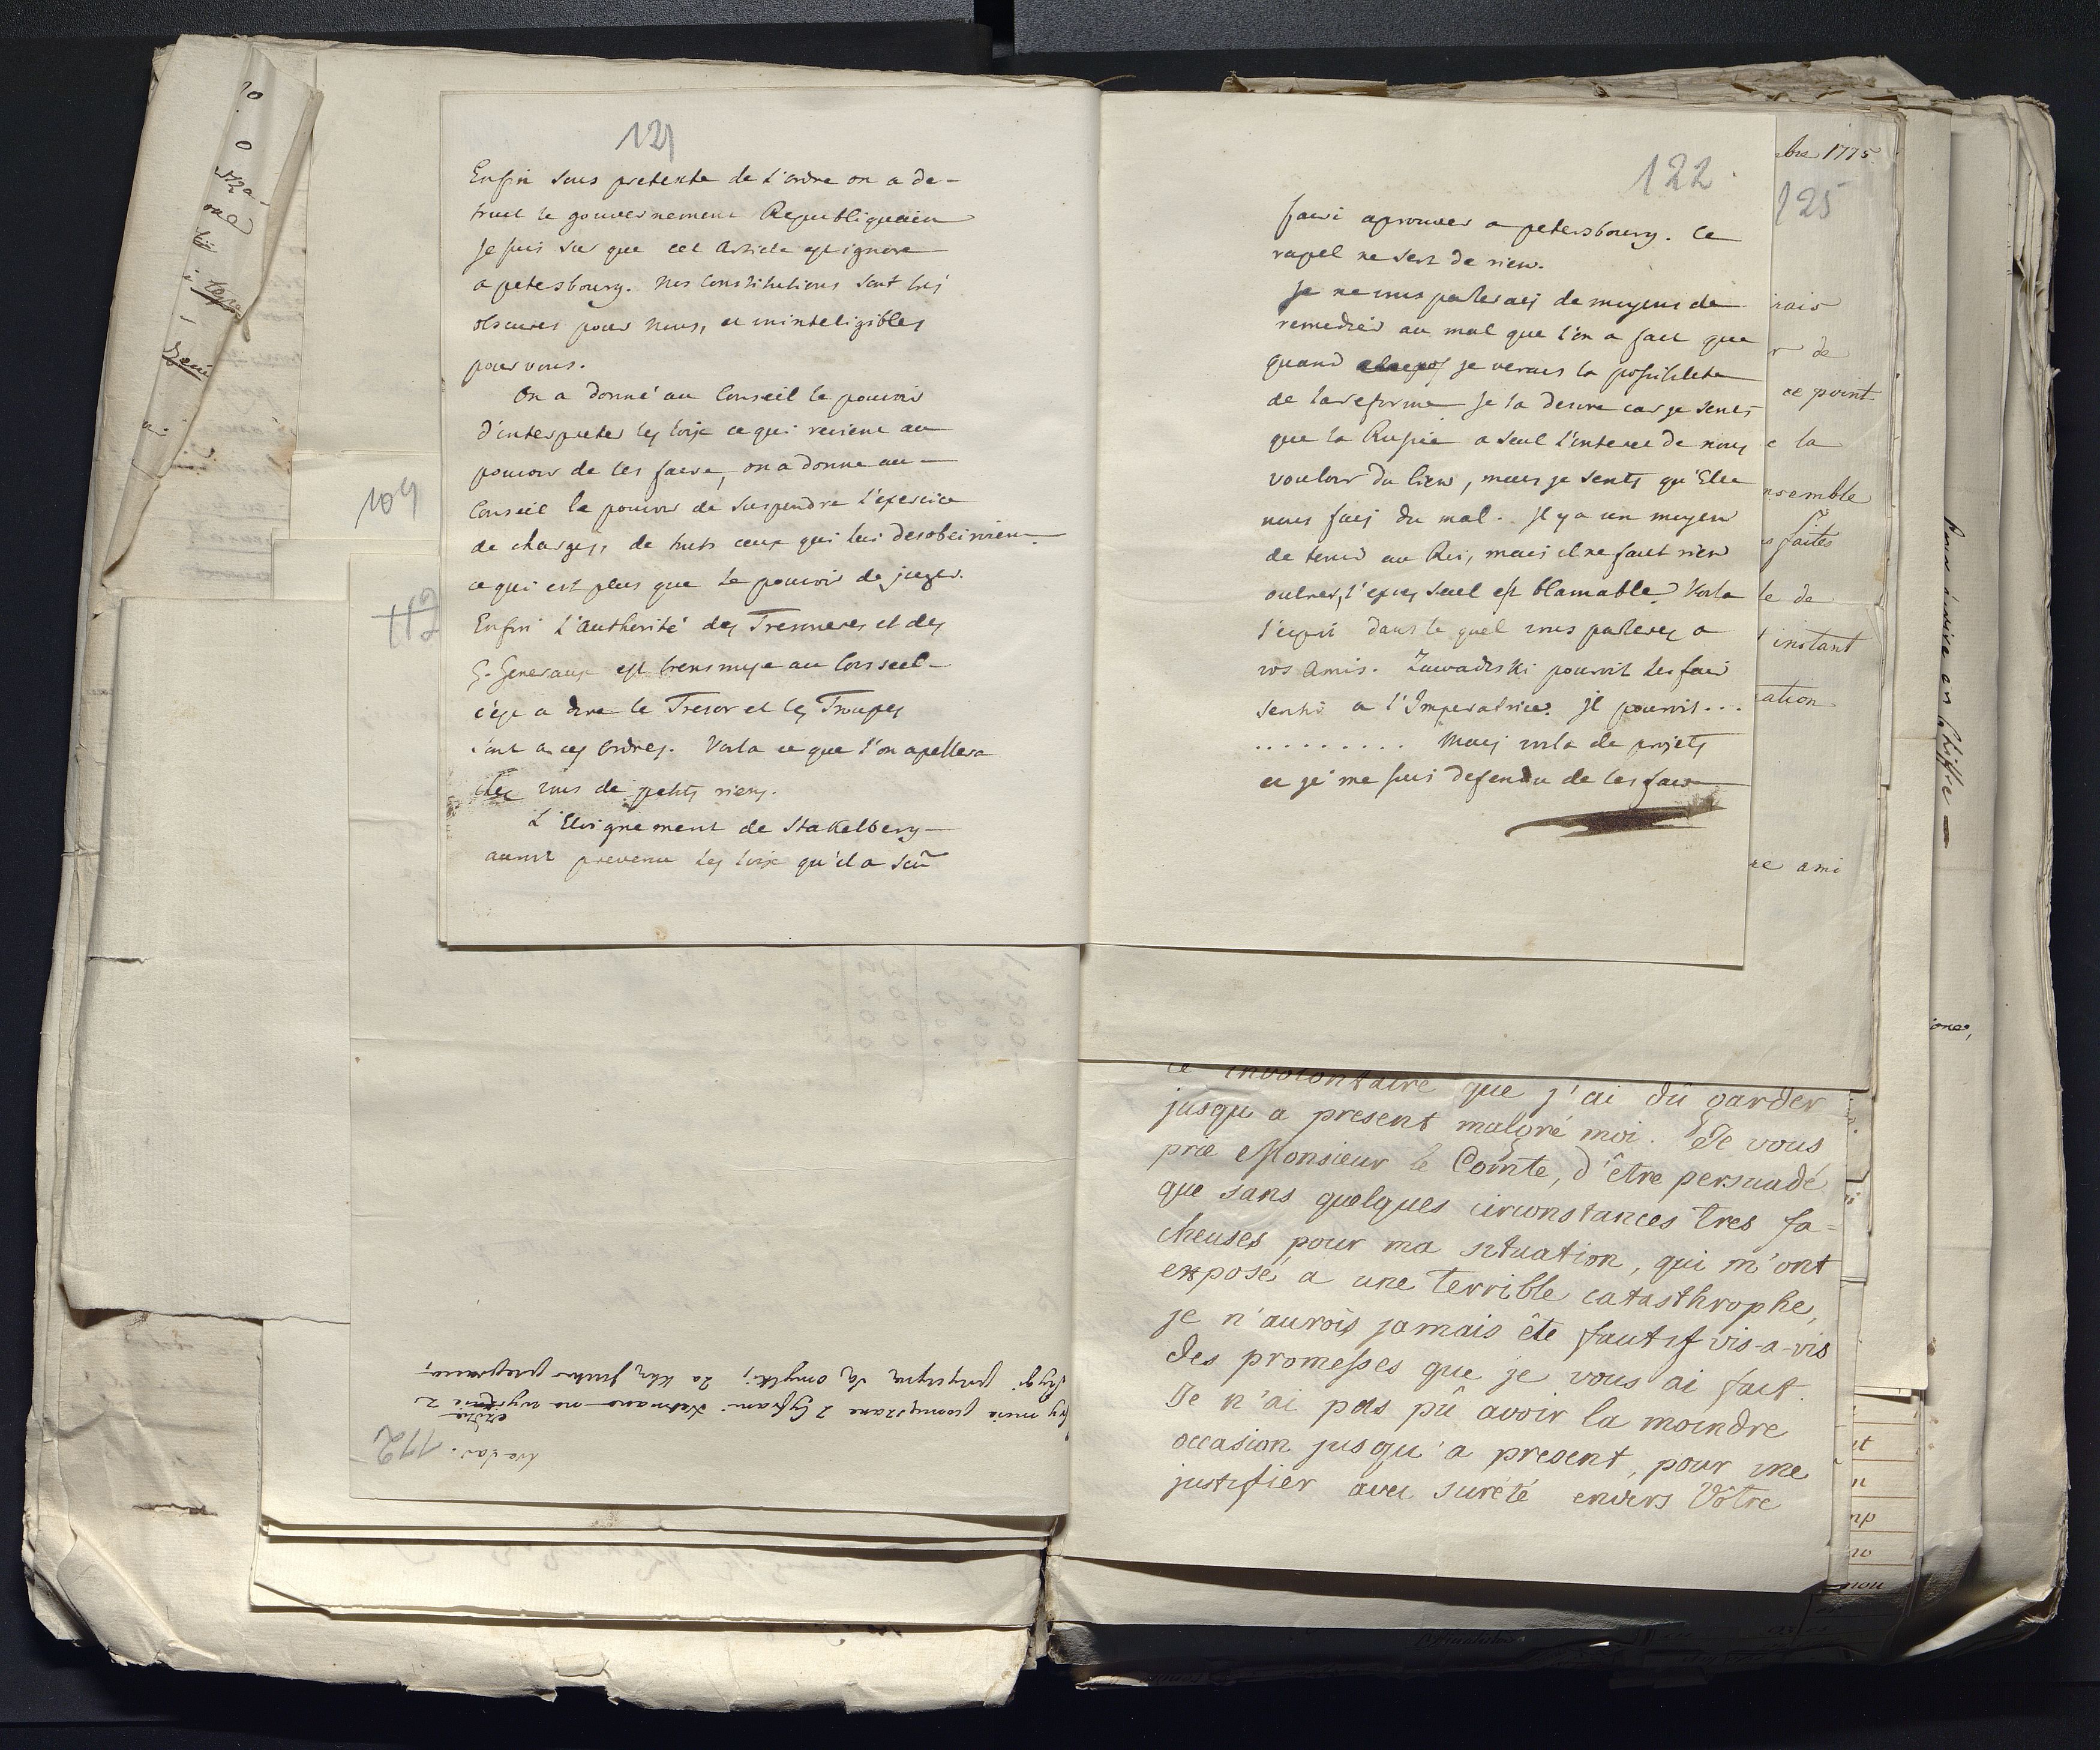 121
Enfin sous pretexte de l'ordre on a de-
truit le gouvernement Republiquain
Je suis sur que cet Article est ignore
a petersbourg. Nos Constitutions sont tres
obscures pour nous, et ininteligibles
pour vous.
On a donné au Conseil le pouvoir
d'interpreter les loix ce qui revient au
pouvoir de les faire, on a donne au
Conseil le pouvoir de suspendre l'exercice
de charges, de touts ceux qui lui desobeiroient
ce qui est plus que le pouvoir de juger.
Enfin l'authorité des Tresoriers et des
G. Generaux est transmise au Conseil
c'est a dire le Tresor et les Troupes
sont a ces Ordres. Voila ce que l'on apellera
chez vous de petits riens.
L'Eloignement de Stakelberg
auroit prevenu les loix qu'il a sçu
122.
faire aprouver a petersbourg. Ce
rapel ne sert de rien.
Je ne vous parlerai de moyens de
remedier au mal que l'on a fait que
quand je verais la possibilite
de la reforme Je la desire car je sents
que la Russie a seul l'interet de nous
vouloir du bien, mais je sents qu'Elle
nous fais du mal. Il y a un moyen
de tenir au Roi, mais il ne faut rien
outrer, l'exces seul est blamable. Voila
l'esprit dans le quel vous parlerez a
vos Amis. Zawadoski pourroit les faire
sentir a l'Imperatrice. Il pourroit...
.......... Mais voila de projets
et je me suis defendu de les faire
bre 1775
125
rais
r de
ce point
e la
nsemble
s faites
le de
t instant
ation
re ami
ce involontaire que j'ai dû garder
jusqu a present malgré moi. Je vous
prie Monsieur le Comte, d'être persuadé
que sans quelques circonstances tres fa=
cheuses pour ma situation, qui m'ont
exposé a une terrible catasthrophe,
je n'aurois jamais éte fautif vis-a-vis
des promesses que je vous ai fait.
Je n'ai pas pû avoir la moindre
occasion jusqu'a present, pour me
justifier avec sureté envers Vôtre
109
112
112